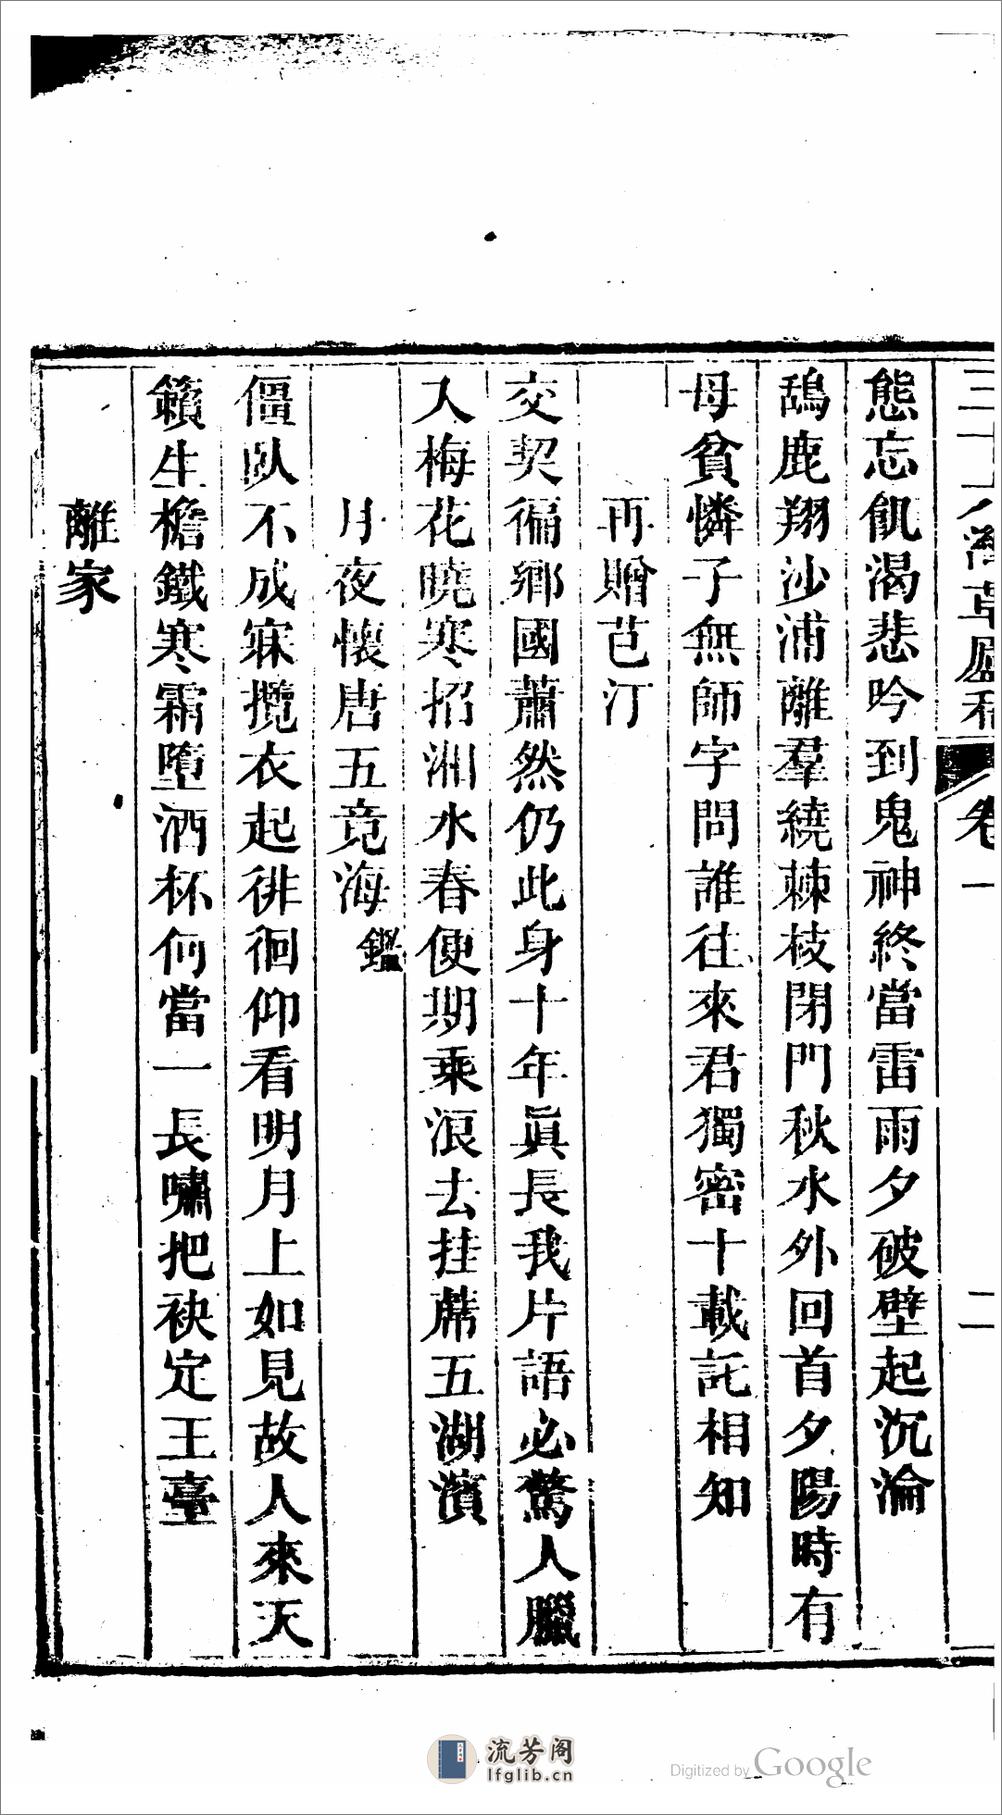 態忘飢渴悲吟到鬼神終當雷雨夕破壁起沉淪
鴰鹿翔沙浦離羣繞棘枝閉門秋水外回首夕陽時有
母貧憐子無師字問誰往來君獨密十載託相知
再贈芑汀
交契徧鄉國蕭然仍此身十年眞長我片語必驚人臘
人梅花曉寒招湘水春便期乘浪去挂蓆五湖濱
月夜懷唐五竟海鑑
僵臥不成寐攬衣起徘徊仰看明月上如見故人來天
籟生檐鐵寒霜墮酒杯何當一長嘯把袂定王臺
離家
卷一
二
流芳阁
lfglib.cn
Digitized by Google